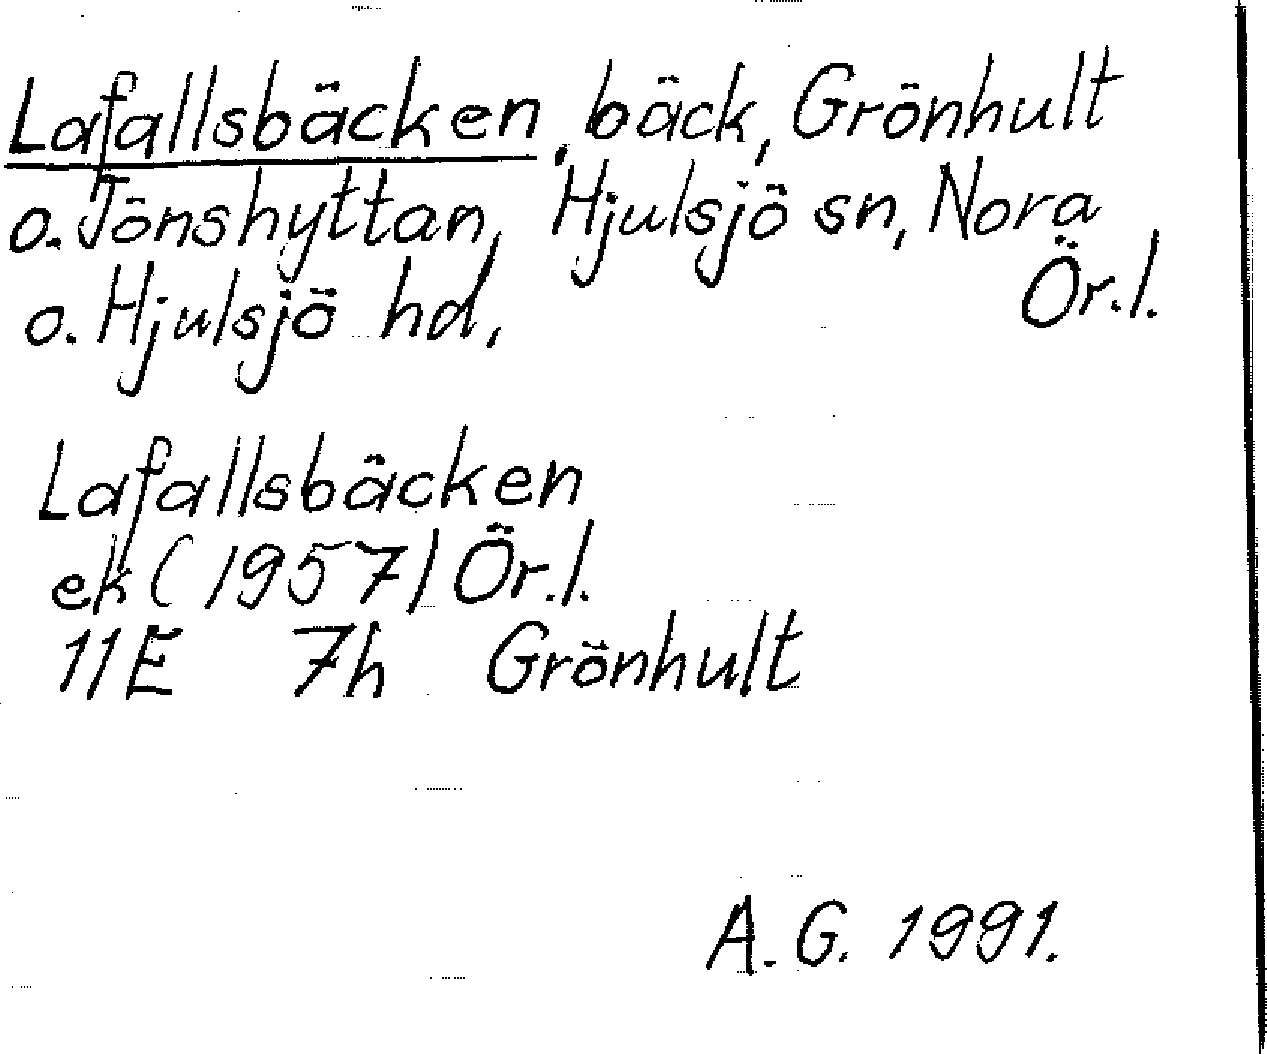 Lafallsbäcken, bäck, Grönhult
o. Jönshyttan, Hjulsjö sn, Nora
o. Hjulsjö hd, Ör.l.
Lafallsbäcken
ek (1957) Ör.l.
11E 7h Grönhult
A.G. 1991.